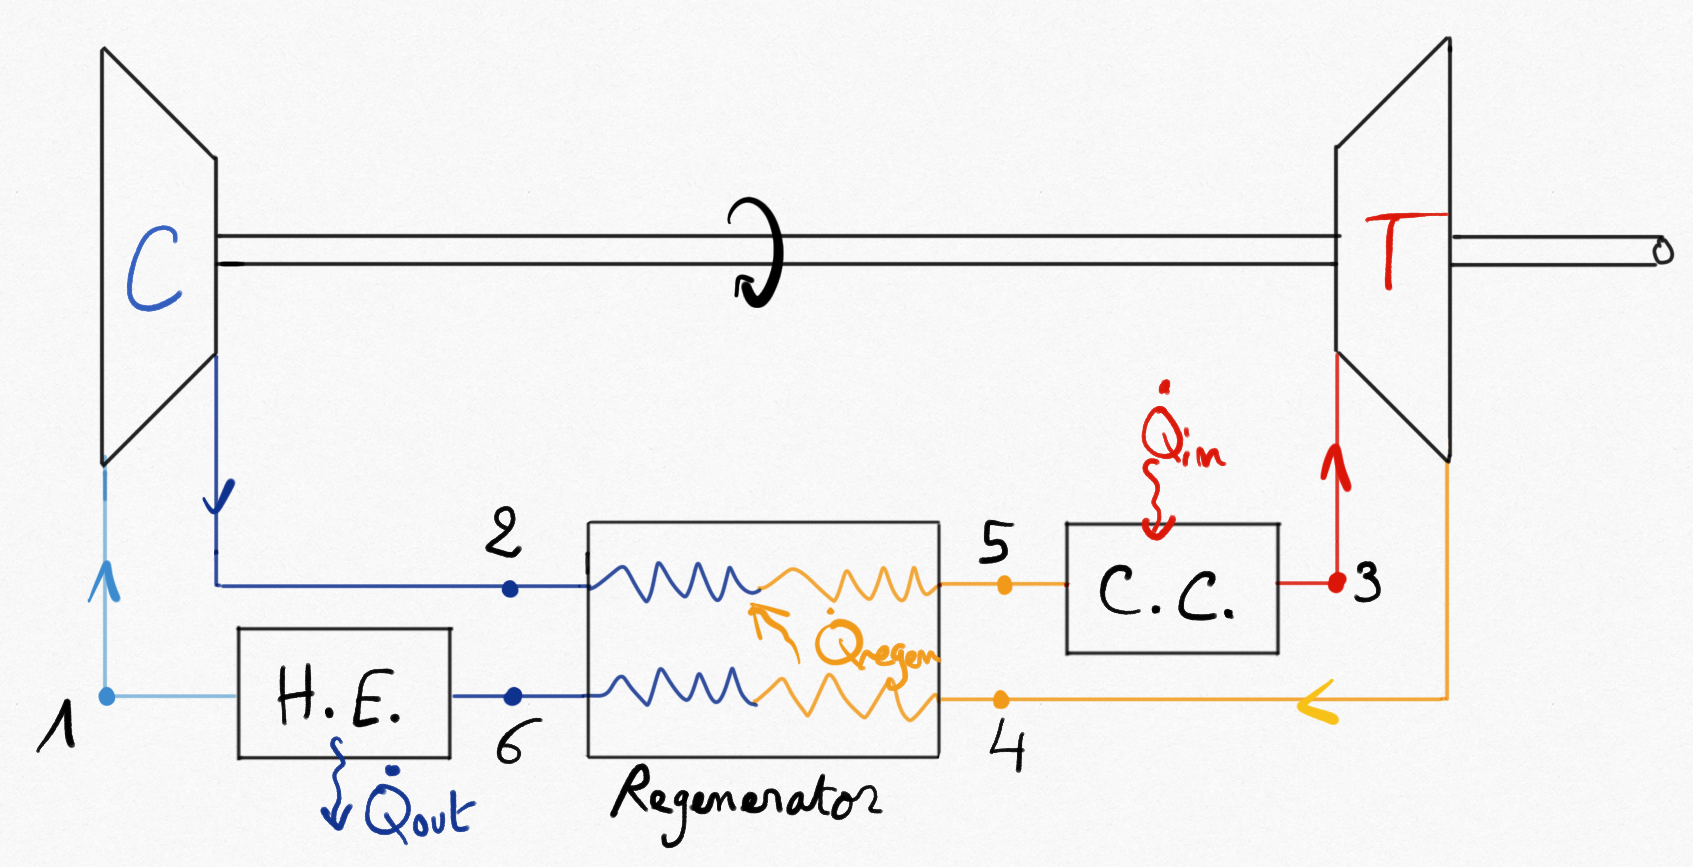 C
T
Q̇in
2
5
C.C.
3
Q̇regen
H.E.
1
6
4
Q̇out
Regenerator